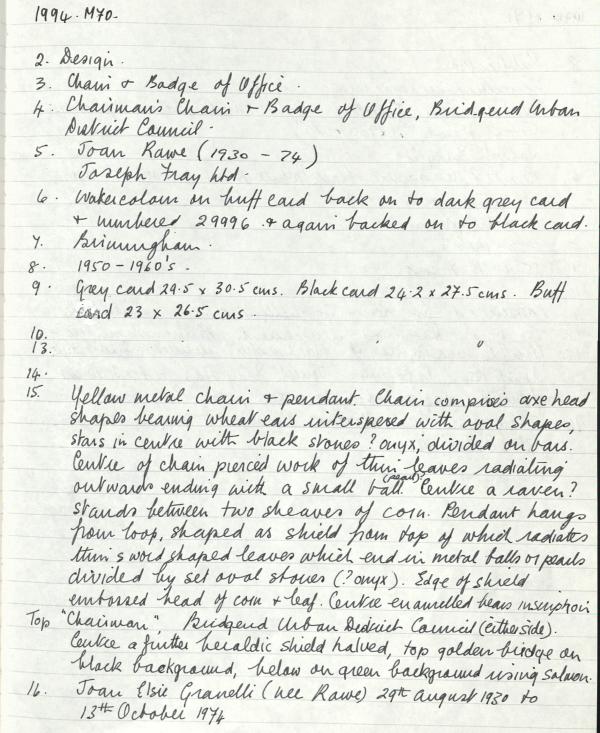 1994. M70.
2. Design.
3. Chain & Badge of Office.
4. Chairman's Chain & Badge of Office, Bridgend Urban
District Council.
5. Joan Rawe (1930 - 74)
Joseph Fray Ltd.
6. Watercolour on buff card back on to dark grey card
& numbered 29996 & again backed on to black card.
7. Birmingham.
8. 1950-1960's.
9 Grey card 29.5 x 30.5 cms. Black card 24.2 x 27.5 cms. Buff
card 23 x 26.5 cms.
10.
13.
14.
15. Yellow metal chain & pendant. Chain comprises axe head
shapes bearing wheat ears interspered with oval shapes,
stars in centre with black stones ? onyx, divided on bars.
Centre of chain pierced work of thin leaves radiating
outwards ending with a small ball (pearl)?. Centre a raven?
stands between two sheaves of corn. Pendant hangs
from loop, shaped as shield from top of which radiates
thin sword shaped leaves which end in metal balls or pearls
divided by set oval stones (?onyx). Edge of shield
embossed head of corn & leaf. Centre enamelled bears inscription
Top "Chairman", Bridgend Urban District Council (either side).
Centre a further heraldic shield halved, top golden bridge on
black background, below on green background rising salmon.
16. Joan Elsie Granelli (nee Rawe) 29th August 1930 to
13th October 1974